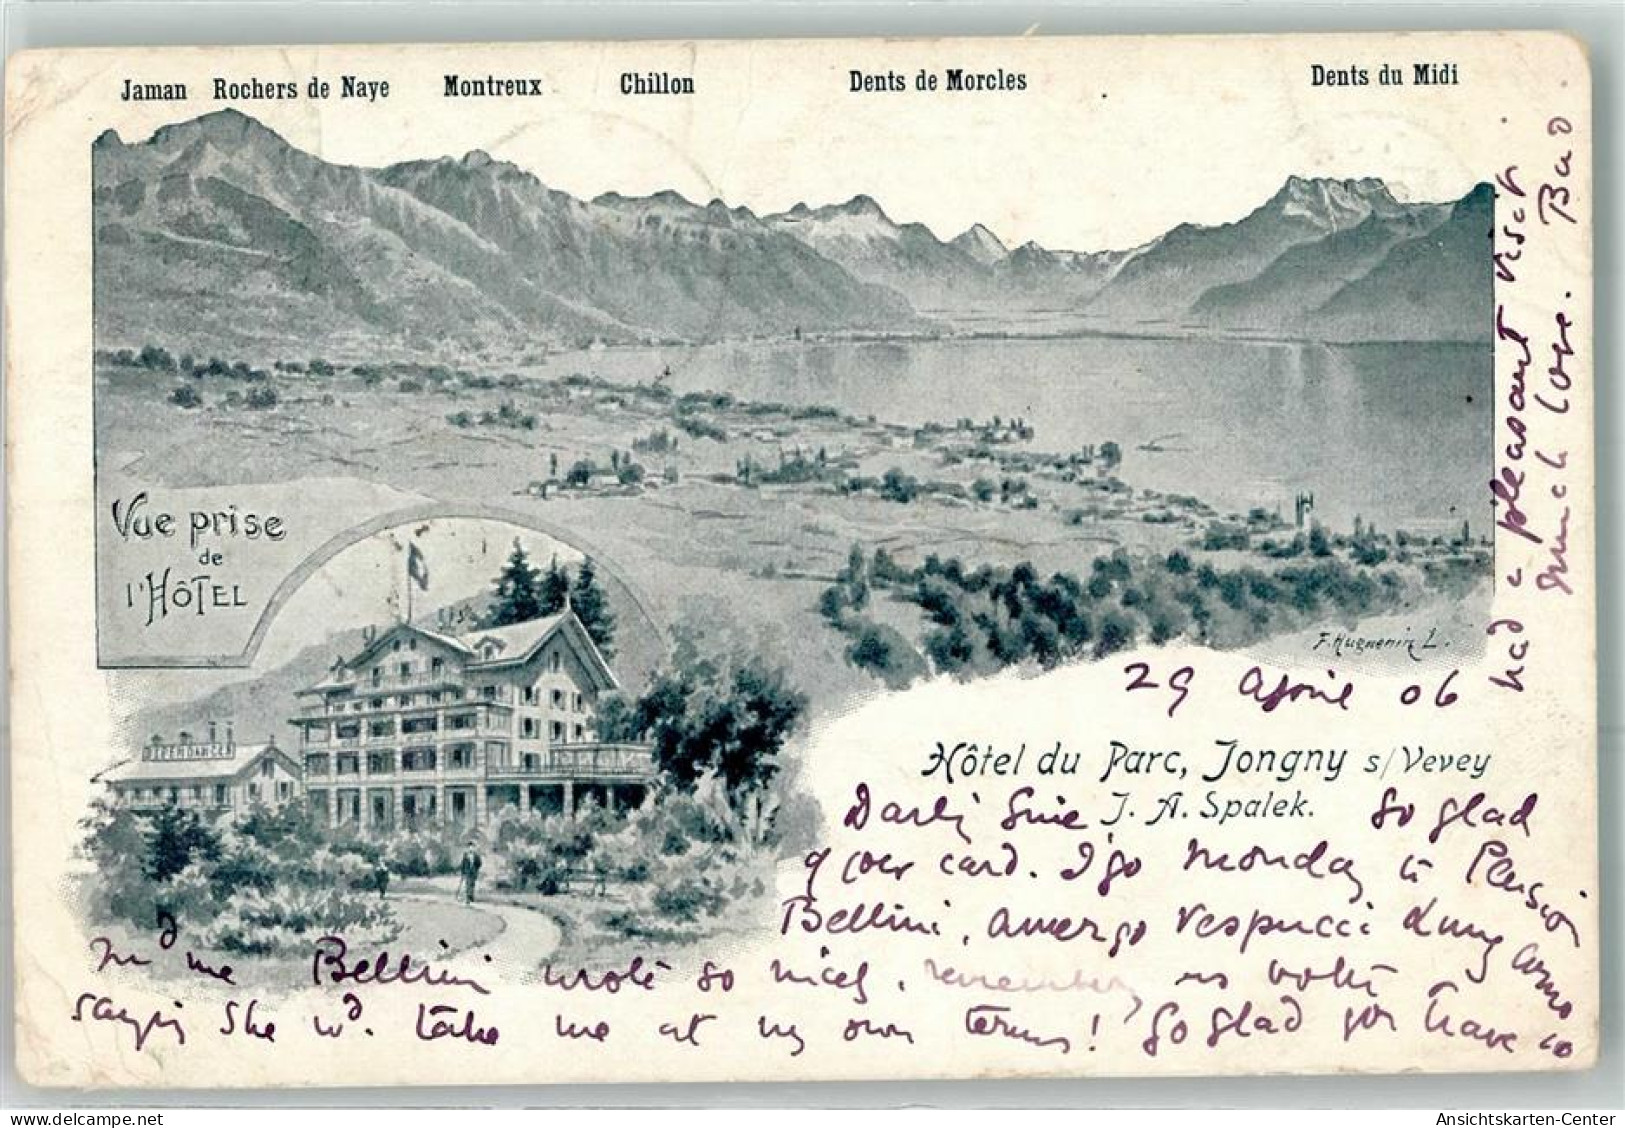 Jaman Rochers de Naye Montreux Chillon Dents de Morcles Dents du Midi
Vue prise
de
l'HÔTEL
DEPENDANCE
F. Huguenin L.
29 April 06
Hôtel du Parc, Jongny s/Vevey
J. A. Spalek.
So glad
of your card. I go Monday to Pension
Bellini, Amergo Vespucci Lung Arno 10
Md me Bellini wrote so nicely, remembering us both
saying she wd. take me at my own terms! So glad you have
had a pleasant visit
much love.
Ansichtskarten-Center